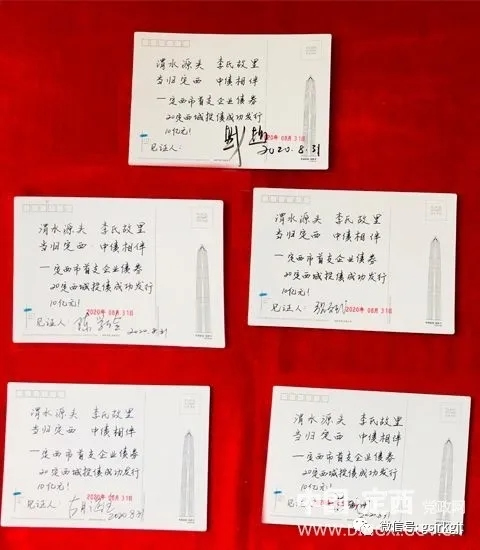 渭水源头 李氏故里
当归定西 中债相伴
—定西市首支企业债券
20定西城投债成功发行
10亿元!
2020年08月31日
见证人:
2020.8.31
渭水源头 李氏故里
当归定西 中债相伴
—定西市首支企业债券
20定西城投债成功发行
10亿元!
2020年08月31日
见证人:
2020.8.31
渭水源头 李氏故里
当归定西 中债相伴
—定西市首支企业债券
20定西城投债成功发行
10亿元!
2020年08月31日
见证人:
渭水源头 李氏故里
当归定西 中债相伴
—定西市首支企业债券
20定西城投债成功发行
10亿元!
2020年08月31日
见证人:
2020.8.31
渭水源头 李氏故里
当归定西 中债相伴
—定西市首支企业债券
20定西城投债成功发行
10亿元!
见证人:
中国·定西 党政网
微信号: gsjrkgjt